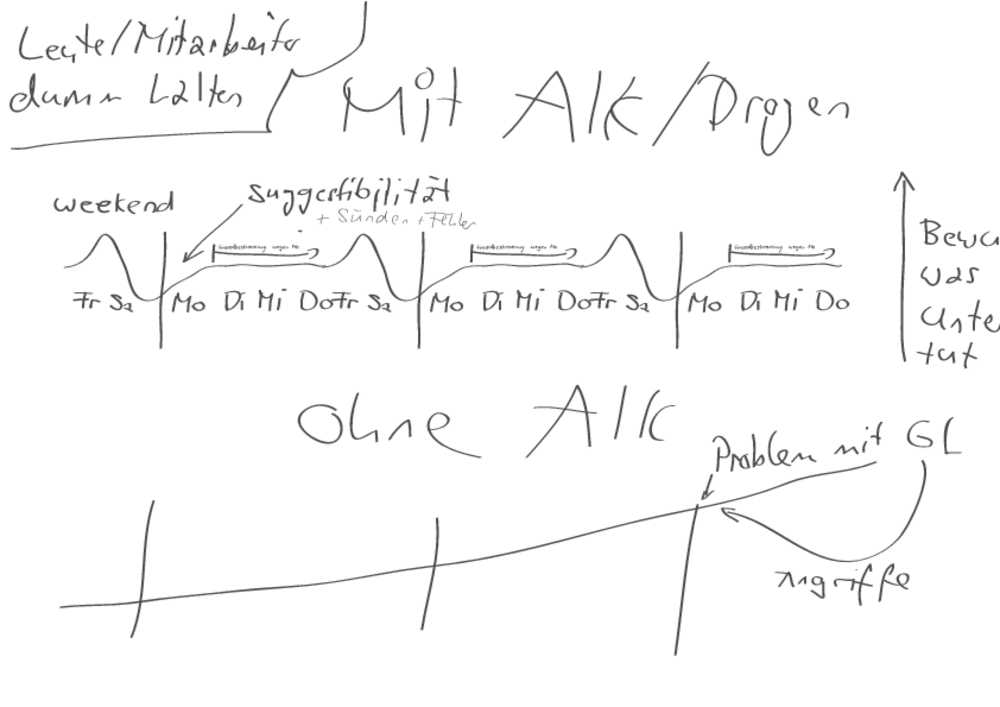 Leute/Mitarbeiter
dumm halten
Mit Alk/Drogen
weekend
Suggestibilität
+ Sünden + Fehler
Fremdbestimmung wegen Mo
Fremdbestimmung wegen Mo
Fremdbestimmung wegen Mo
Fr Sa Mo Di Mi Do Fr Sa Mo Di Mi Do Fr Sa Mo Di Mi Do
Bewu
was
Unte
tut
Ohne Alk
Problem mit GL
Angriffe